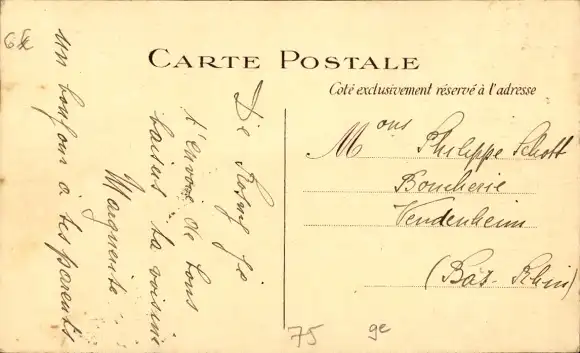 CARTE POSTALE
Coté exclusivement réservé à l'adresse
De Rosny je
t'envoie de bons
baisers ta voisine
Marguerite
un bonjour à tes parents
Mons Philippe Schott
Boucherie
Vendenheim
(Bas-Rhin)
75
ge